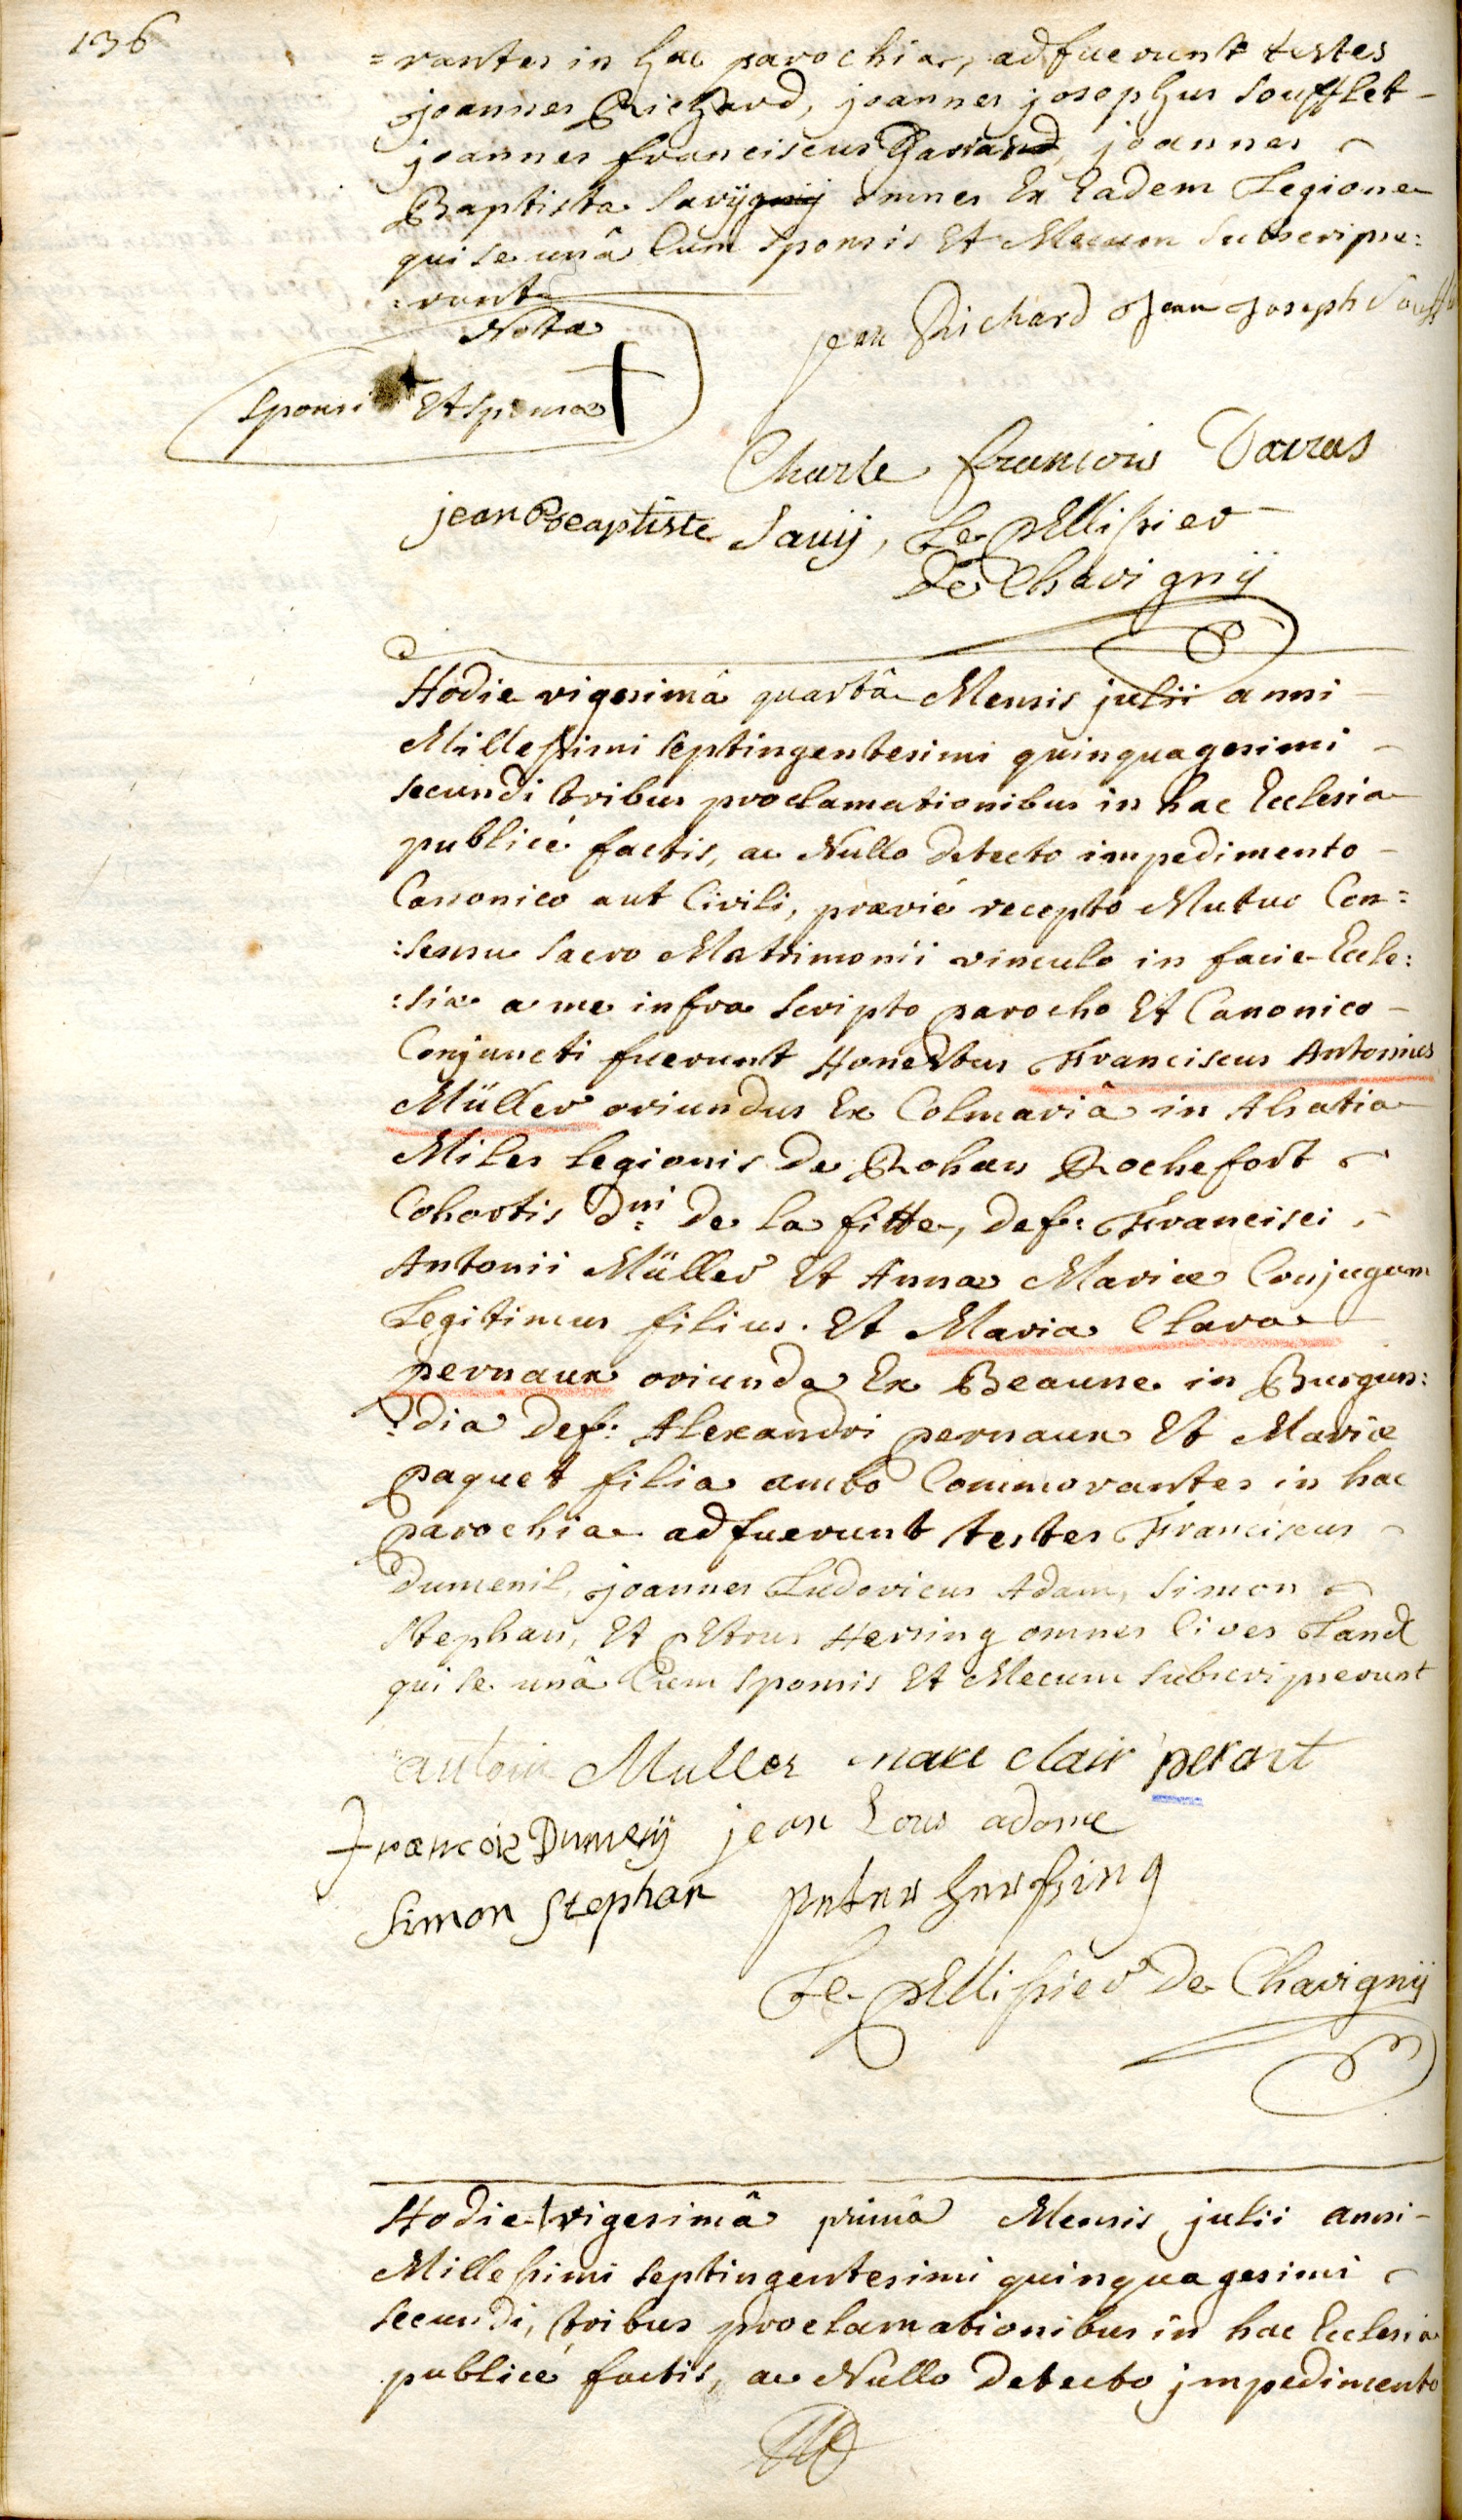 136
=rantes in hac parochia, adfuerunt testes
joannes Richard, joannes josephus Soufflet -
joannes franciscus joannes
Baptista Savÿgnÿ omnes Ex Eadem Legione
qui se unâ Cum Sponsis Et Mecum Subscripse:
:runt
Nota
Sponsi Et Sponsæ
jean Richard Jean Joseph
Charle francois Darras
jean Beaptiste Savÿ, Le pellissier
De Chavignÿ
Hodie vigesimâ quartâ Mensis julii anni
Millessimi Septingentesimi quinquagesimi -
secundi tribus proclamationibus in hac Ecclesia
publicé factis, ac Nullo detecto impedimento -
Canonico aut Civili, prævié recepto Mutuo Con=
:sensu Sacro Matrimonii vinculo in facie Eccle:
:siæ a me infra Scripto parocho Et Canonico -
Conjuncti fuerunt Honestus Franciscus Antonius
Müller oriundus Ex Colmariâ in Alsatia
Miles Legionis De Rohan Rochefort
Cohortis Dni De la fitte, def: Francisci
Antonii Müller Et Annæ Mariæ Conjugum
Legitimus filius. Et Maria Clara
pernaux oriunda Ex Beaune in Burgun:
:dia Def: Alexandri pernaux Et Mariæ
paquet filia ambo Commorantes in hac
parochia adfuerunt testes Franciscus
Dumenil, joannes Ludovicus Adam, Simon
Stephan, Et petrus Hersing omnes Cives Land
qui se unâ Cum Sponsis Et Mecum subscripserunt
antoin Muller marie clair
Francois Dumenÿ jean Louis adame
Simon Stephan peter hersing
Le pellissier De Chavignÿ
Hodie vigesimâ primâ Mensis julii anni -
Millessimi Septingentesimi quinquagesimi
secundi, tribus proclamationibus in hac Ecclesia
publicé factis, ac Nullo detecto jmpedimento